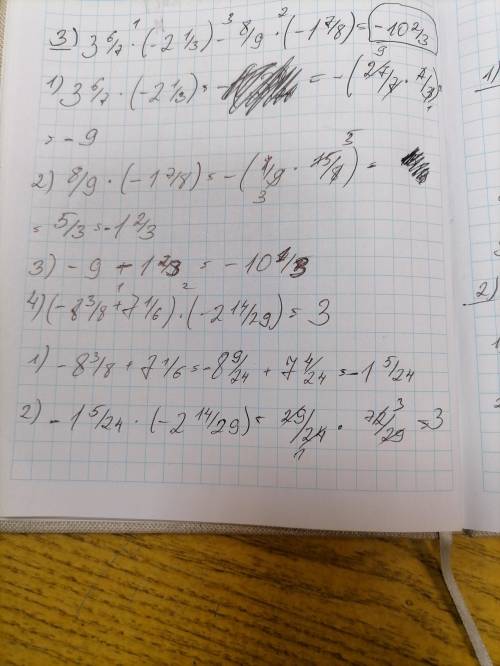 3) 3 6/7 · (-2 1/3) - 8/9 · (-1 7/8) = -10 2/3
1) 3 6/7 · (-2 1/3) = = -(27/7 · 7/3) 9 1
= -9
2) 8/9 · (-1 7/8) = -(8/9 · 15/8) = 5 3
= 5/3 = -1 2/3
3) -9 - 1 2/3 = -10 2/3
4) (-8 3/8 + 7 1/6) · (-2 14/29) = 3
1) -8 3/8 + 7 1/6 = -8 9/24 + 7 4/24 = -1 5/24
2) -1 5/24 · (-2 14/29) = 29/24 · 72/29 = 3